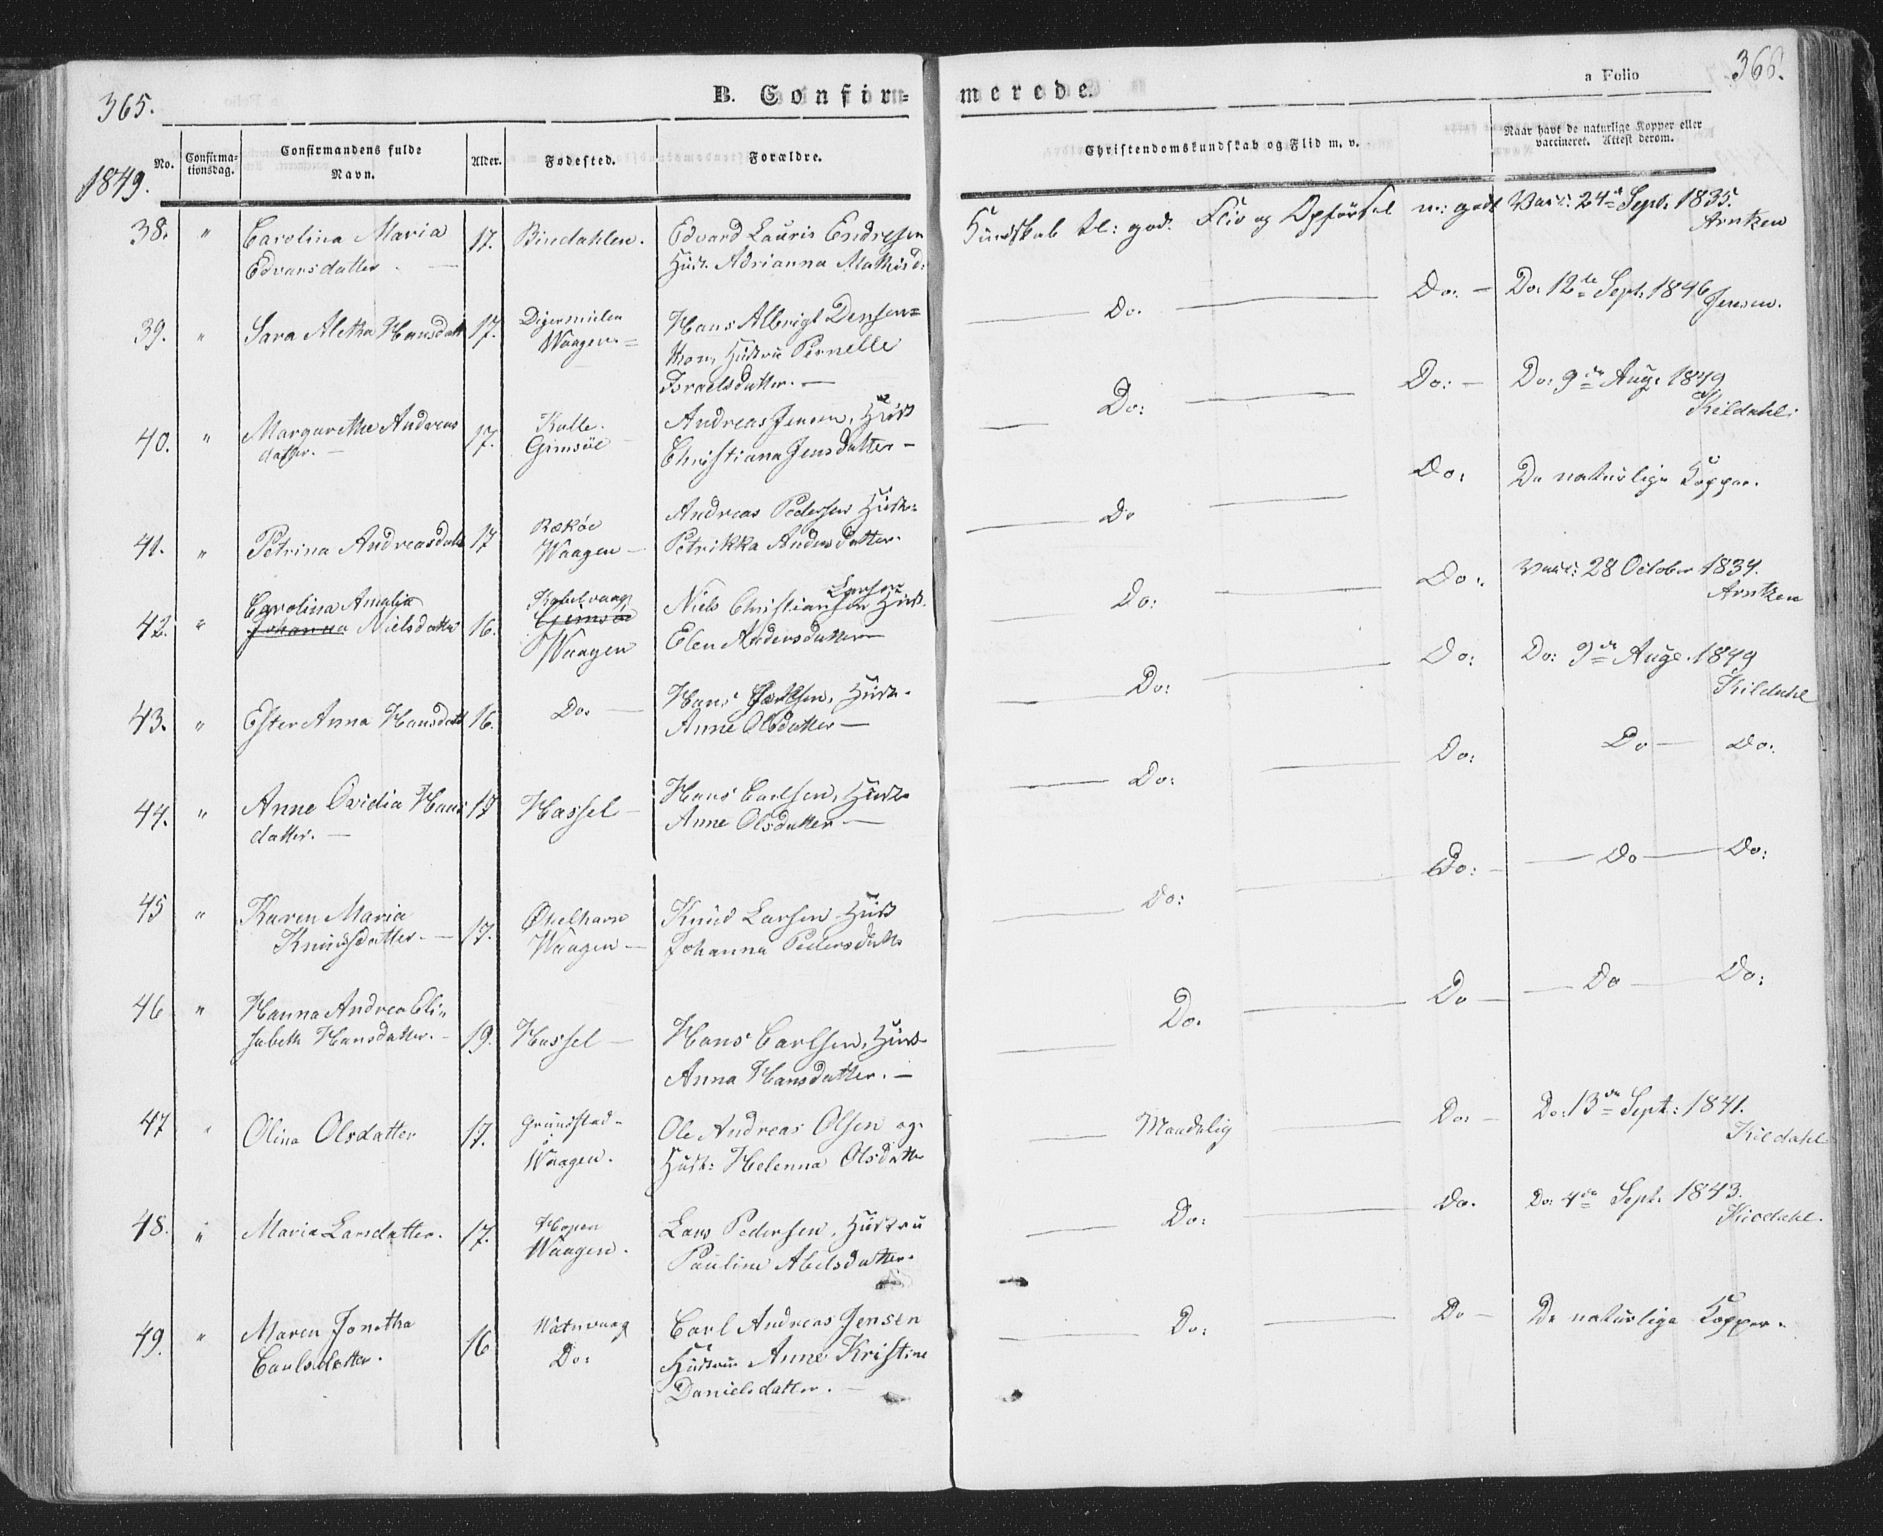 365.
B. Confir=
merede.
a Folio
366.
No.
Confirma-
tionsdag.
Confirmandens fulde
Navn.
Alder.
Fødested.
Forældre.
Christendomskundskab og Flid m. v.
Naar havt de naturlige Kopper eller
vaccineret. Attest derom.
1849.
38. " Carolina Maria 17. Bindahlen. Edvard Lauris Endresen Kundskab tl: god. Flid og Opførsel m: godt Vacc: 24de Sept. 1835.
Edvarsdatter. — Hust. Adrianna Mathisd: Arntzen
39. " Sara Aletha Hansdatt 17. Digermulen Hans Albrigt Densen= — Do. — Do. — Do. 12te Sept. 1846 Jensen.
Waagen. = Hustru Pernelle
Israelsdatter. —
40. " Margarethe Andreas 17. Kalle. Andreas Jensen, Hust — Do: — Do: — Do: 9de Aug: 1849
datter. — Gimsöe — Christiana Jensdatter — Kildahl:
41. " Petrina Andreasdatt 17 Andreas Pedersen Hust: — Do — Do: De naturlige Kopper.
Waagen — Petrikka Andersdatter.
42. " Carolina Amalia 16. Kabelvaag Niels Christiansen Larsen Hust. Do: — Do: Vacc: 28 October 1834.
Johanna Nielsdatter Gimsöe Elen Andersdatter Arntzen
Waagen
43. " Ester Anna Hansdatt 16. Do. — Hans Carlsen, Hust. — Do: — Do: Do: 9de Aug. 1849
Anne Olsdatter — Kildahl
44. " Anne Ovidia Hans 17 Hassel — Hans Carlsen, Hust. — Do: — Do: Do — Do.
datter. — Anne Olsdatter —
45 " Karen Maria 17. Knud Larsen Hust — Do: — Do: — Do — Do:
Knudsdatter. — Waagen — Johanna Pedersdatt
46 " Hanna Andrea Eli= 19. Hassel — Hans Carlsen, Hust — Do. — Do — Do — Do:
sabeth Hansdatter. — Anna Hansdatter. —
47 " Olina Olsdatter 17. Grundstad- Ole Andreas Olsen og — Maadelig — Do. — Do: 13de Sept: 1841.
Waagen. Hust: Helenna Olsdatte Kildahl
48. " Maria Larsdatter. 17. Hopen Lars Pedersen, Hustru — Do: Do. Do: 4de Sept. 1843.
Waagen. Pauline Abelsdatter. Kildahl.
49. " Maren Jonetha 16 Watnvaag Carl Andreas Jensen — Do: — Do — De naturlige Kopper.
Carlsdatter. Do: Hustru Anne Kristine
Danielsdatter. —